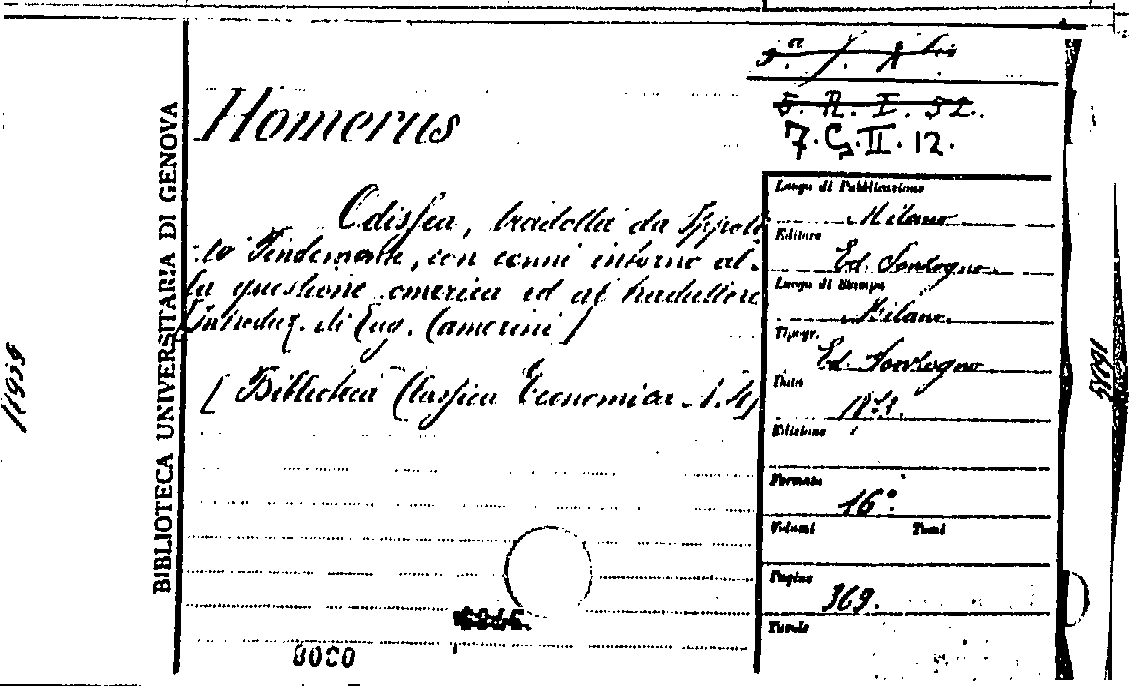 5. R. I. 52.
7. G. II. 12.
Homerus
Odissea, tradotta da Ippoli
to Pindemonte, con cenni intorno al-
la questione omerica ed al traduttore
Introduz. di Eug. Camerini]
[Biblioteca Classica Economica N. 4]
BIBLIOTECA UNIVERSITARIA DI GENOVA
Luogo di Pubblicazione
Milano
Editore
Ed. Sonzogno
Luogo di Stampa
Milano
Tipogr.
Ed. Sonzogno
Data
1873.
Edizione
Formato
16°.
Volumi Tomi
Pagine
369.
Tavole
8000
11939